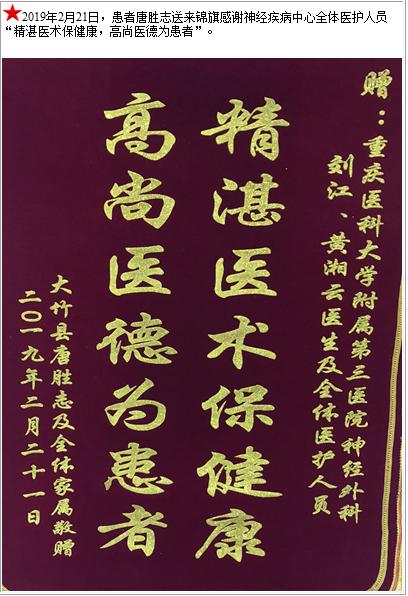 2019年2月21日，患者唐胜志送来锦旗感谢神经疾病中心全体医护人员
“精湛医术保健康，高尚医德为患者”。
赠：重庆医科大学附属第三医院神经外科
刘江、黄湘云医生及全体医护人员
精湛医术保健康
高尚医德为患者
大竹县唐胜志及全体家属敬赠
二〇一九年二月二十一日